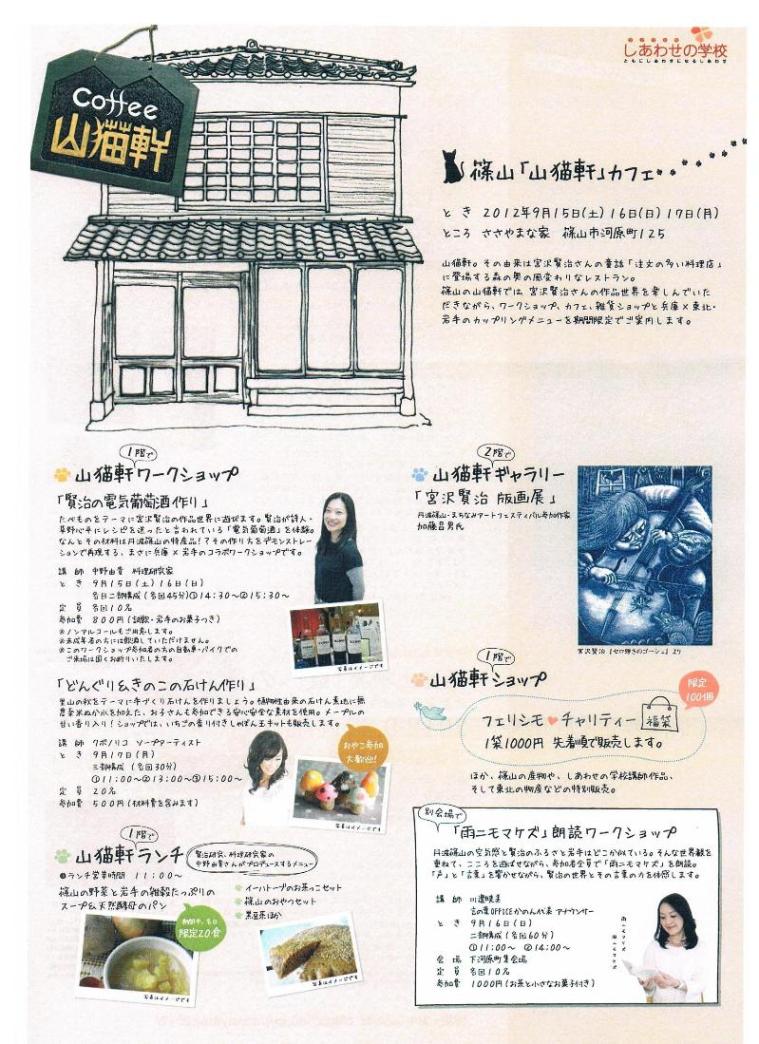 しあわせの学校
ともにしあわせになるしあわせ
Coffee
山猫軒
篠山「山猫軒」カフェ
と き 2012年9月15日(土)16日(日)17日(月)
ところ ささやまな家 篠山市河原町125
山猫軒。その由来は宮沢賢治さんの童話「注文の多い料理店」
に登場する森の奥の風変わりなレストラン。
篠山の山猫軒では、宮沢賢治さんの作品世界を楽しんでいた
だきながら、ワークショップ、カフェ、雑貨ショップと兵庫×東北・
岩手のカップリングメニューを期間限定でご案内します。
1階で
山猫軒ワークショップ
「賢治の電気葡萄酒作り」
たべものをテーマに宮沢賢治の作品世界に遊びます。賢治が詩人・
草野心平にレシピを送ったと言われている「電気葡萄酒」を体験。
なんとその材料は丹波篠山の特産品!?その作り方をデモンストレー
ションで再現する、まさに兵庫×岩手のコラボワークショップです。
講 師 中野由貴 料理研究家
と き 9月15日(土)16日(日)
各日二部構成(各回45分)①14:30~②15:30~
定 員 各回10名
参加費 800円(試飲・岩手のお菓子つき)
※ノンアルコールもご用意します。
※未成年者の方には飲酒していただけません。
※このワークショップ参加者の方の自動車・バイクでの
ご来場は固くお断りいたします。
写真はイメージです
「どんぐり&きのこの石けん作り」
里山の秋をテーマに手づくり石けんを作りましょう。植物性由来の石けん素地に無
農薬米ぬか水を加えた、お子さんも参加できる安心安全な素材を使用。メープルの
甘い香り入り!ショップでは、いちごの香り付きしゃぼん玉キットも販売します。
講 師 クボノリコ ソープアーティスト
と き 9月17日(月)
三部構成(各回30分)
①11:00~②13:00~③15:00~
定 員 20名
参加費 500円(材料費を含みます)
おやこ参加
大歓迎!
写真はイメージです
1階で
山猫軒ランチ
賢治研究、料理研究家の
中野由貴さんがプロデュースするメニュー
●ランチ営業時間 11:00~
篠山の野菜と岩手の雑穀たっぷりの
スープ&天然酵母のパン
イーハトーブのお茶っこセット
篠山のおやつセット
黒豆茶ほか
期間中、各日
限定20食
写真はイメージです
写真はイメージです
2階で
山猫軒ギャラリー
「宮沢賢治 版画展」
丹波篠山・まちなみアートフェスティバル参加作家
加藤昌男氏
宮沢賢治『セロ弾きのゴーシュ』より
1階で
山猫軒ショップ
限定
100個
フェリシモ♥チャリティー 福袋
1袋1000円 先着順で販売します。
ほか、篠山の産物や、しあわせの学校講師作品、
そして東北の物産などの特別販売。
別会場で
「雨ニモマケズ」朗読ワークショップ
丹波篠山の空気感と賢治のふるさと岩手はどこか似ている。そんな世界観を
重ねて、こころを遊ばせながら、参加者全員で「雨ニモマケズ」を朗読。
「声」と「言葉」を響かせながら、賢治の世界とその言葉の力を体感します。
講 師 川邊暁美
言の葉OFFICEかのん代表 アナウンサー
と き 9月16日(日)
二部構成(各回60分)
①11:00~ ②14:00~
会 場 下河原町集会場
定 員 各回10名
参加費 1000円(お茶と小さなお菓子付き)
雨ニモマケズ
風ニモマケズ